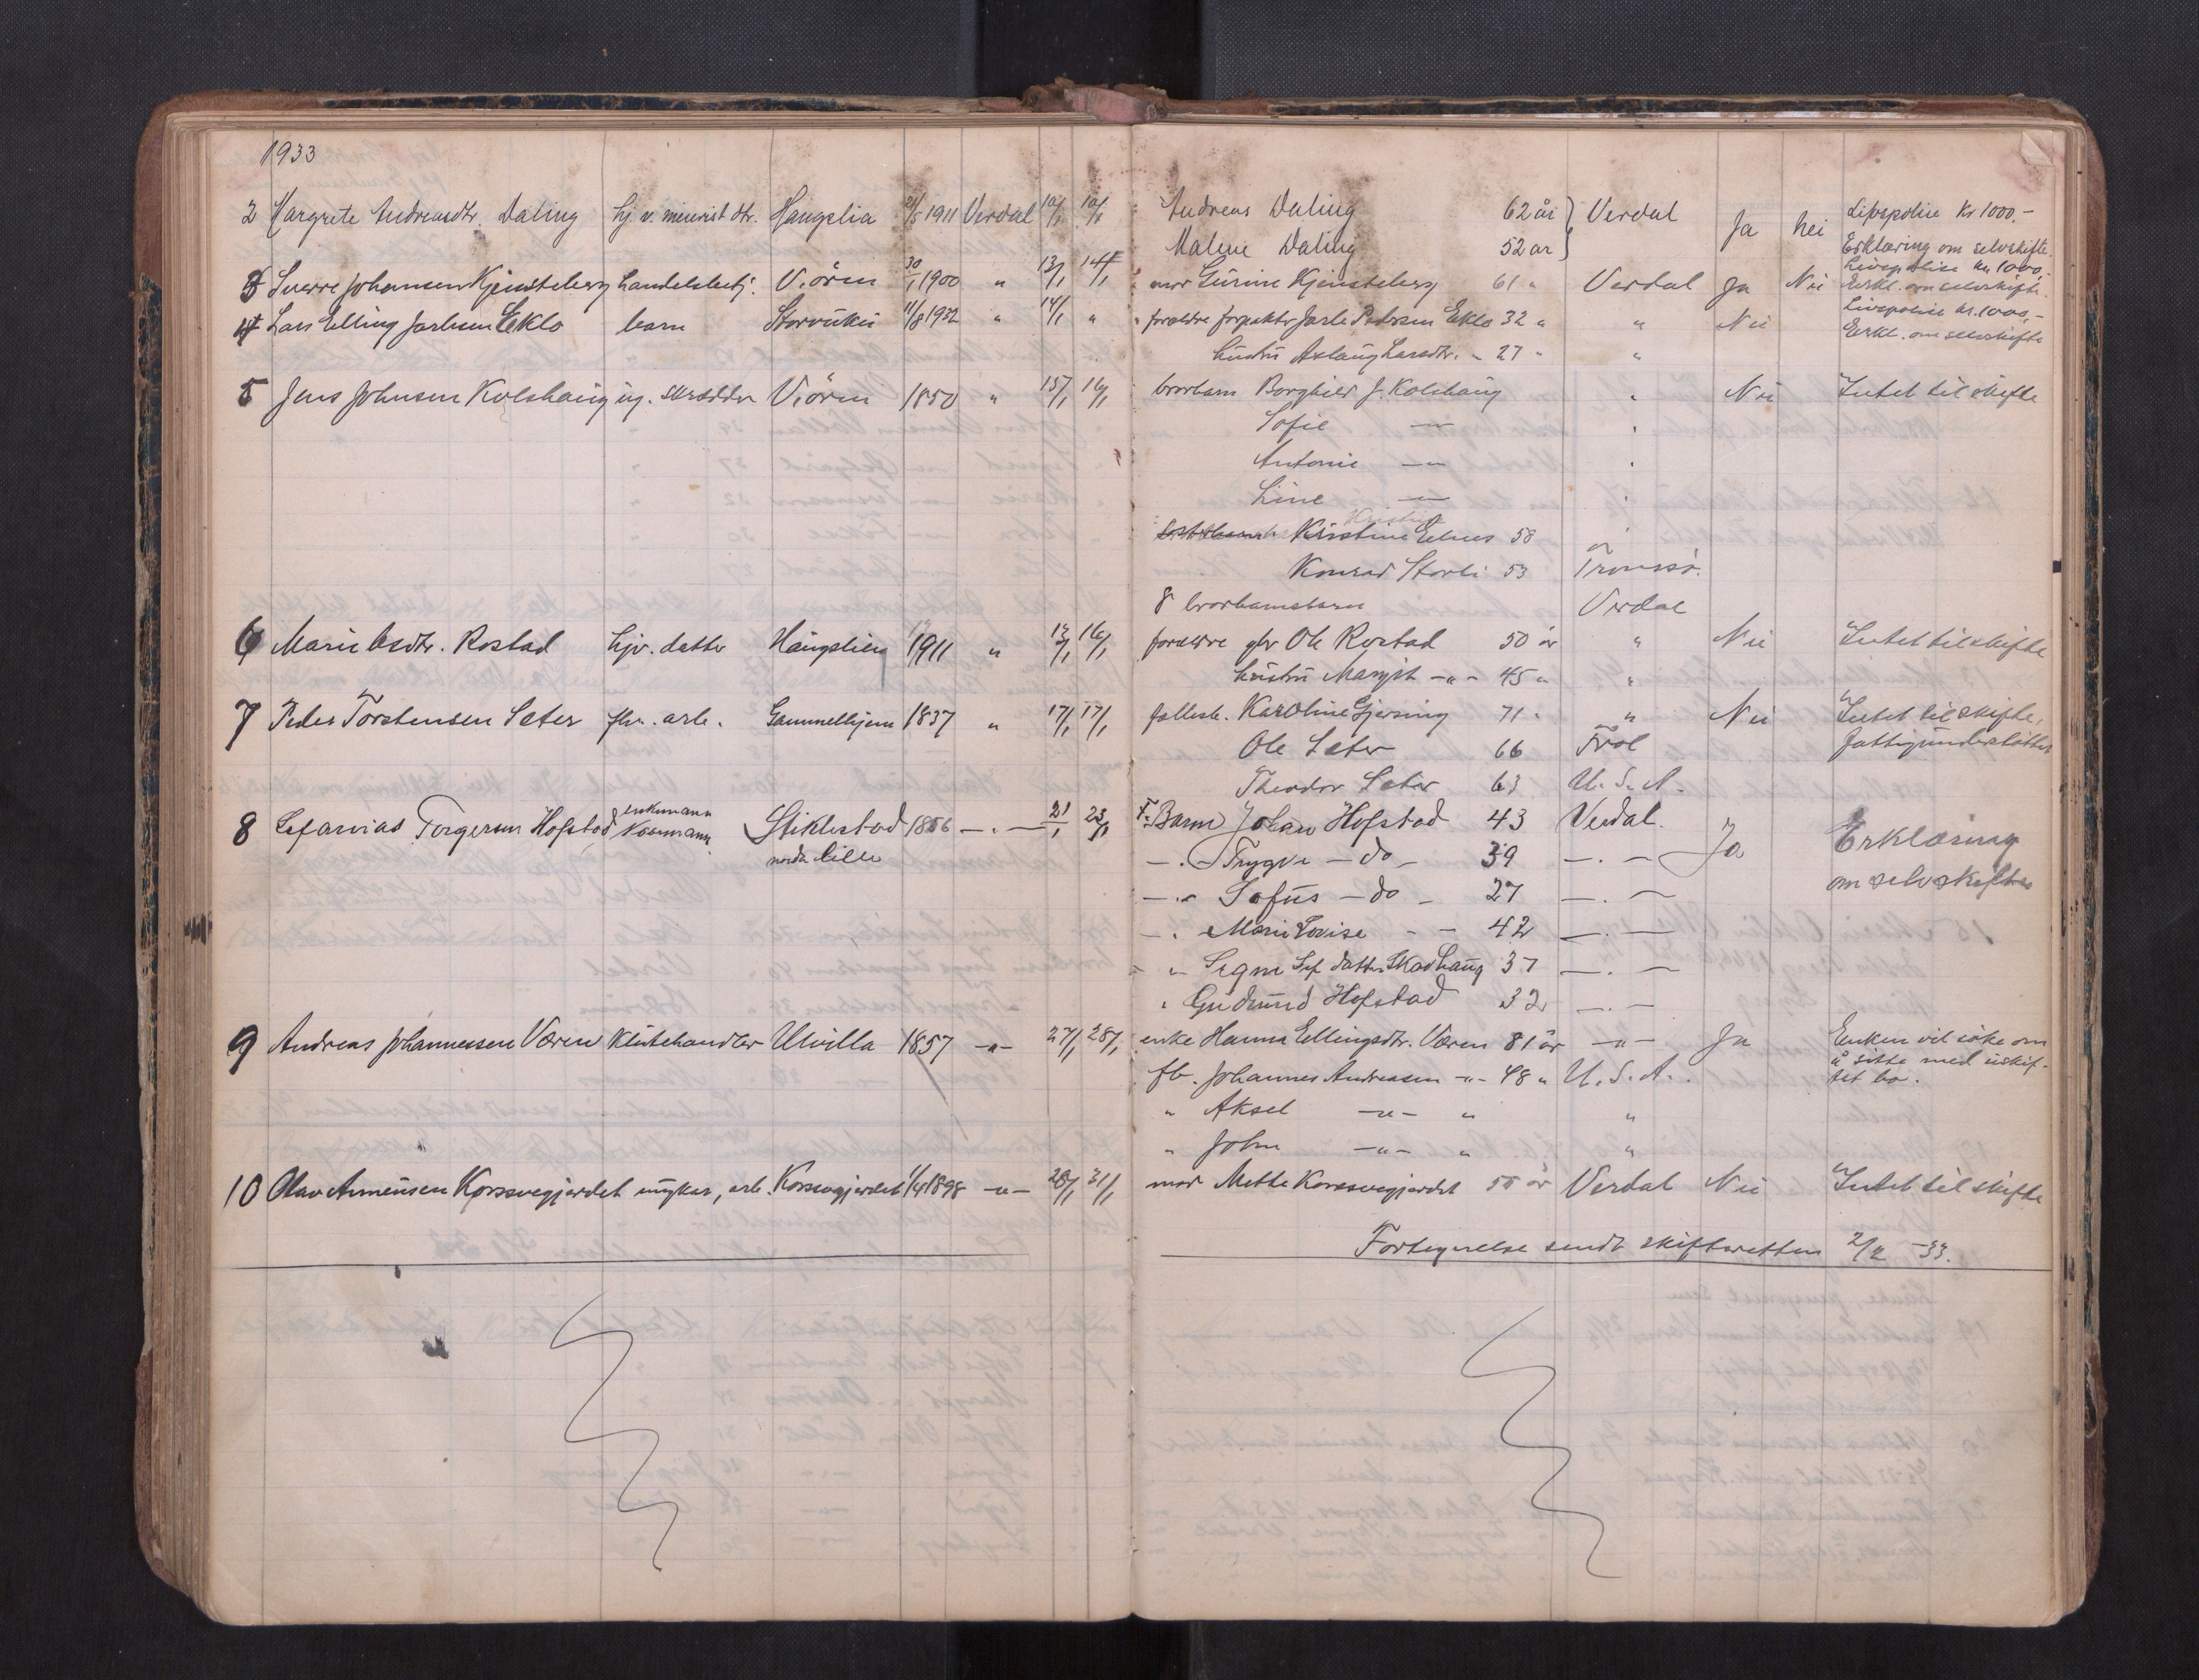 1933
2 Margrete Andreasdtr. Daling hj. v. minerist dtr. Haugslia 21/5 1911 Verdal 10/1 Andreas Daling 62 år Verdal Ja Nei Livspolise Kr 1000.-
Malene Daling 52 år Erklæring om selvskifte
3 Sverre Johansen Kjensteberg handelsbetj. V.ören 30/1 1900 " 13/1 14/1 mor Gurine Kjensteberg 61 " Verdal Ja Nei Livspolise kr. 1000,- Erkl. om selvskifte.
4 Lars Elling Jarlsen Eklo barn Storvuku 11/8 1932 " 14/1 " foreldre forpakter Jarle Pedersen Eklo 32 " " Nei Livspolise kr. 1000,- Erkl. om selvskifte
hustru Aslaug Larsdtr. " 27 " "
5 Jens Johnsen Kolshaug ug. skredder V.ören 1850 " 15/1 16/1 brorbarn Borghild J. Kolshaug " Nei Intet til skifte
Sofie -"- "
Antonie -"- "
Line -"- "
Kristine 58 "
Konrad Storli 53 Tromsø.
8 brorbarnsbarn Verdal
6 Marie Olsdtr. Rostad hjv. datter Haugslien 1911 " 16/1 foreldre gbr Ole Rostad 50 år " Nei Intet til skifte
hustru Margit -"- 45 " "
7 Peder Torstensen Sæter fhv. arb. Gammelhjem 1837 " 17/1 17/1 fellesb. Karoline Gjersing 71 " " Nei Intet til skifte,
Ole Sæter 66 Frol fattigunderstøttet
Theodor Sæter 63 U.S.A.
8 Sefanias Torgersen Hofstad enkemann Kaarmann Stiklestad nordre lille 1856 -"- 21/1 23/1 F. Barn Johan Hofstad 43 Verdal. Ja Erklæring
-"- Trygve -do- 39 -"- om selvskifte
-"- Sofus -do- 27 -"-
-"- Marie Lovise - - 42 -"-
" Signe Sef. datter Skavhaug 37 -"-
" Gudrund Hofstad 32 -"-
9 Andreas Johannessen Væren Klutehandler Ulvilla 1857 -"- 27/1 28/1 enke Hanna Ellingsdtr. Væren 81 år -"- Ja Enken vil søke om
å sitte med uskif-
fb. Johannes Andreassen -"- 48 " U.S.A. tet bo.
" Aksel -"- " "
" John -"- " "
10 Olav Arneusen Korssvegjerdet ungkar, arb. Korssvegjerdet 1/4 1898 -"- 28/1 31/1 mor Mette Korssvegjerdet 55 år Verdal Nei Intet til skifte
Fortegnelse sendt skifteretten 2/2 -33.